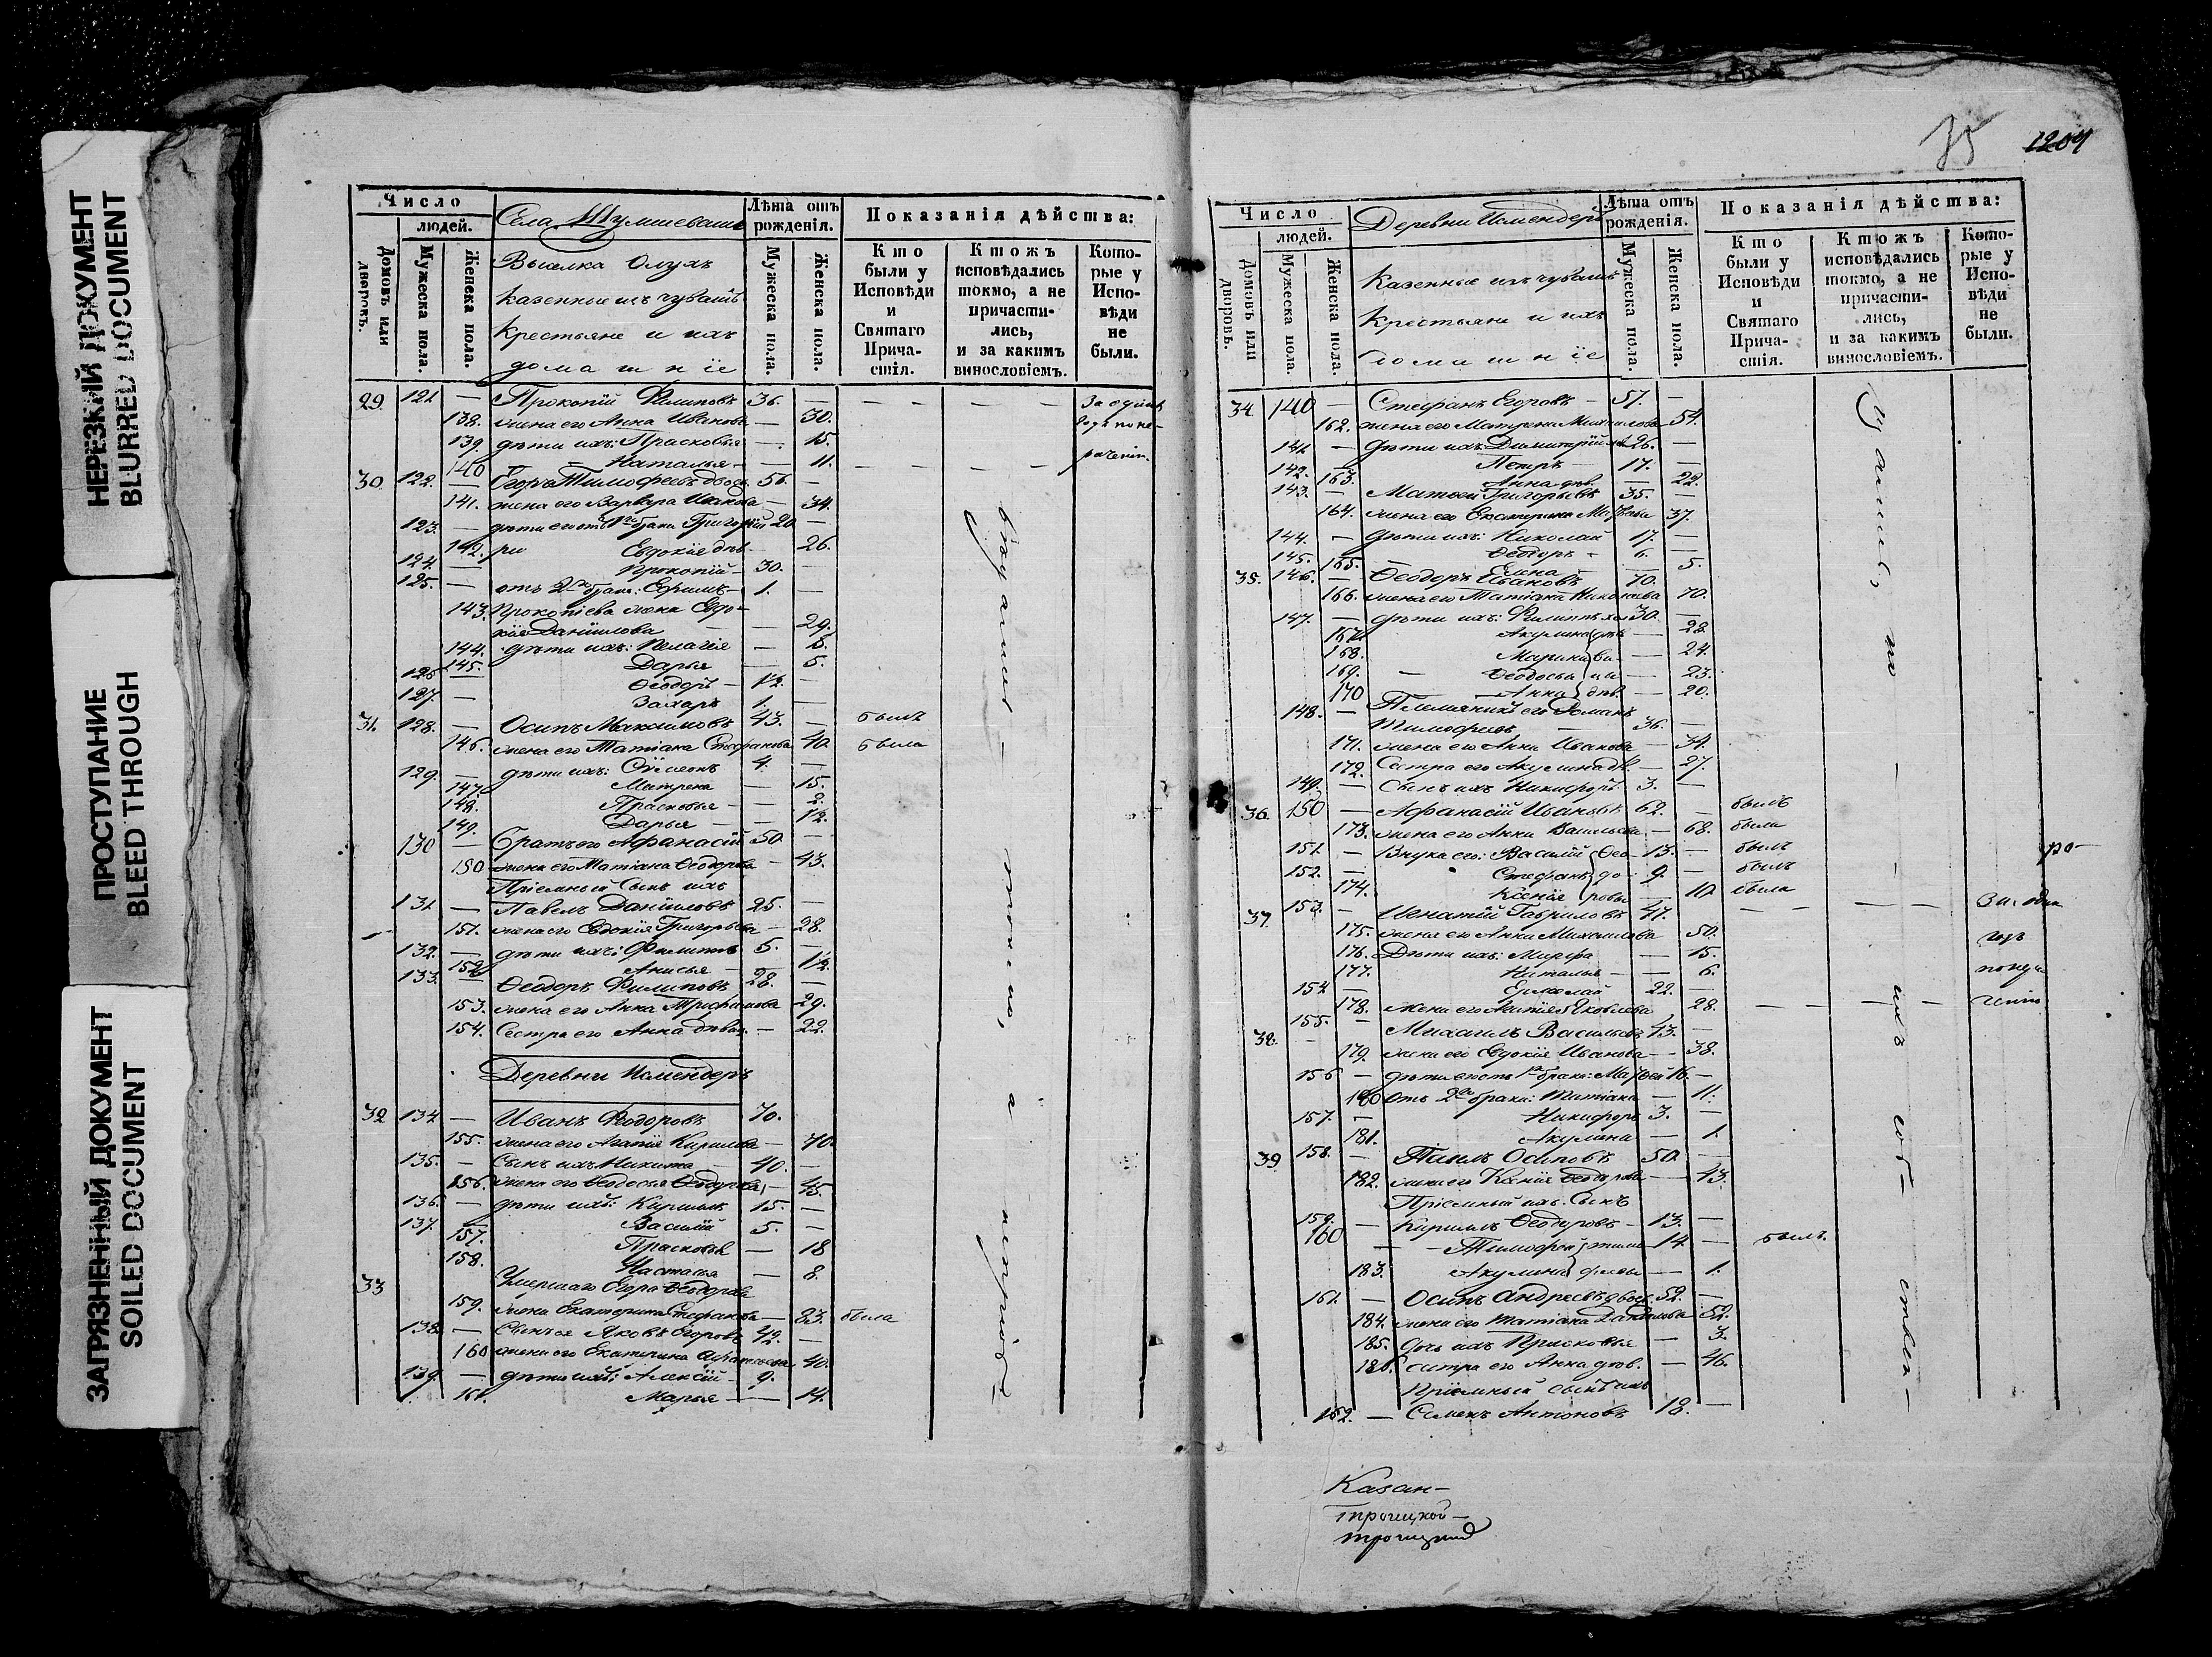 НЕРЕЗКИЙ ДОКУМЕНТ
BLURRED DOCUMENT
ПРОСТУПАНИЕ
BLEED THROUGH
ЗАГРЯЗНЕННЫЙ ДОКУМЕНТ
SOILED DOCUMENT
Число
людей.
Домовъ или дворовъ.
Мужеска пола.
Женска пола.
Села
Выселка
казенные изъ чувашъ
крестьяне и ихъ
домашніе
Лѣта отъ рожденія.
Мужеска пола.
Женска пола.
Показанія дѣйства:
Кто были у Исповѣди и Святаго Причастія.
Ктожъ исповѣдались токмо, а не причастились, и за какимъ винословіемъ.
Которые у Исповѣди не были.
29. 121. — Прокопій Филиповъ 36. —
138. жена его Анна Иванова — 30.
139. дѣти ихъ: Прасковья — 15.
140 Наталья — 11.
30. 122. — Егоръ Тимофеевъ 56. —
141. жена его Варвара Иванова — 34.
123. — дѣти его отъ 1го брака Григорій 20 —
142. Евдокія — 26.
124. — Прокопій 30. —
125. — отъ 2го брака: Ефимъ 1. —
143. Прокопіева жена Евдо-
кія Данилова — 29.
144. дѣти ихъ: Пелагія —
145. Дарья — 5.
126 — Ѳеодоръ 1/2. —
127. — Захаръ 1. —
31. 128. — Осипъ Максимовъ 43. — былъ
146. жена его Татіана Стефанова 40. была
129. — дѣти ихъ: Сѵмеонъ 4. —
147. Матрена — 15.
148. Прасковья — 2.
149. Дарья — 1/2.
130 — Братъ его Афанасій 50. —
150 жена его Татіана Ѳеодорова — 43.
Пріемный Сынъ ихъ
131 — Павелъ Даниловъ 25. —
151. жена его Евдокія Григорьева — 28.
132. — дѣти ихъ: Филиппъ 5. —
152. Анисья — 1/2.
133. — Ѳеодоръ Филиповъ 28. —
153. жена его Анна Трифонова 29.
154. Сестра его Анна дѣвица — 22.
Деревни Исмендеръ
32. 134 — Иванъ Ѳеодоровъ 70.
155. жена его Агапія Кирилова — 70.
135. — Сынъ ихъ Никита 40. —
156. жена его Ѳеодосья Ѳеодорова — 45.
136. — дѣти ихъ: Кириллъ 15. —
137. Василій 5. —
157. Прасковья — 18
158. Настасья — 8.
33 Умершаго Егора Ѳеодорова
159. жена Екатерина Стефанова — 83. была
138. — Сынъ ея Яковъ Егоровъ 42. —
160 жена его Екатерина — 40.
139. — дѣти ихъ: Алексій 9.
161. Марья — 14.
35 1204
Число
людей.
Домовъ или дворовъ.
Мужеска пола.
Женска пола.
Деревни Исмендеръ
Казенные изъ чувашъ
крестьяне и ихъ
домашніе
Лѣта отъ рожденія.
Мужеска пола.
Женска пола.
Показанія дѣйства:
Кто были у Исповѣди и Святаго Причастія.
Ктожъ исповѣдались токмо, а не причастились, и за какимъ винословіемъ.
Которые у Исповѣди не были.
34. 140 — Стефанъ Егоровъ 57. —
162. жена его Матрена Михайлова 54.
141 — дѣти ихъ: Димитрій 26. —
142. Петръ 17. —
163. Анна дѣв. — 22.
143. — Матѳей Григорьевъ 35. —
164. жена его Екатерина Матѳеева 37.
144. — дѣти ихъ: Николай 17. —
145. Ѳеодоръ 6. —
165. Елена — 5.
35. 146. — Ѳеодоръ Ивановъ 70.
166. жена его Татіана Николаева 70.
147. — дѣти ихъ: Филиппъ 30. —
167. Акулина — 28.
168. Марина — 24.
169. Ѳеодосья — 23.
170 Анна — 20.
148. — Племянникъ его Романъ
Тимофеевъ 36. —
171. жена его Анна Иванова — 34.
172. Сестра его Акулина — 27.
149. — Сынъ ихъ Никифоръ 3. —
36. 150 — Афанасій Ивановъ 62. — былъ
173. жена его Анна Васильева — 68. была
151. — Внука его: Василій Ѳео- 13. — былъ
152. — Стефанъ до- 9. — былъ
174. Ксенія ровы — 10. была
37. 153. — Игнатій Гавриловъ 47.
175. жена его Анна Михайлова 50.
176. Дѣти ихъ: Марфа — 15.
177. Наталья — 6.
154 — Ермолай 22. —
178. жена его Яковлева 28.
38. 155. — Михаилъ Васильевъ 43. —
179. жена его Евдокія Иванова — 38.
156 — дѣти его отъ 1го брака: Матѳей 16. —
180 отъ 2го брака: Татіана — 11.
157. Никифоръ 3. —
181. Акулина — 1.
39. 158. — Павелъ Осиповъ 50. —
182. жена его Ксенія Ѳеодорова — 43.
Пріемный ихъ Сынъ
159. — Кириллъ Ѳеодоровъ 13. —
160 — Тимофей 14 — былъ
183. Акулина — 1.
161. — Осипъ Андреевъ 52. —
184. жена его Татіана Данилова 52.
185. дочь ихъ Прасковья — 3.
186. сестра его Анна дѣв. — 46.
Пріемный сынъ ихъ
162. — Семенъ Антоновъ 18. —
Казан-
Троицкой-